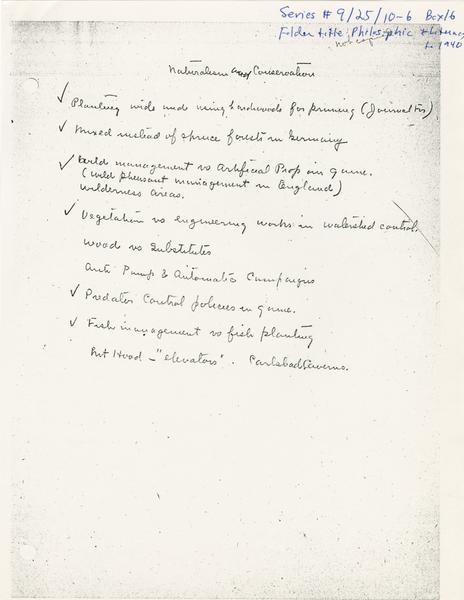 Series # 9/25/10-6 Box 16
Folder title: Philosophic + Literary
c. 1940
Naturalism and Conservation
✓ Planting wide and using hardwoods for pruning (Journal For)
✓ Mixed instead of spruce forests in Germany
✓ Wild management vs Artificial Prop in game.
(wild pheasant management in England)
Wilderness areas.
✓ Vegetation vs engineering works in watershed control
Wood vs Substitutes
Anti Pump & Automatic Campaigns
✓ Predator Control policies in game.
✓ Fish management vs fish planting
Mt Hood - "elevators". Carlsbad Caverns.